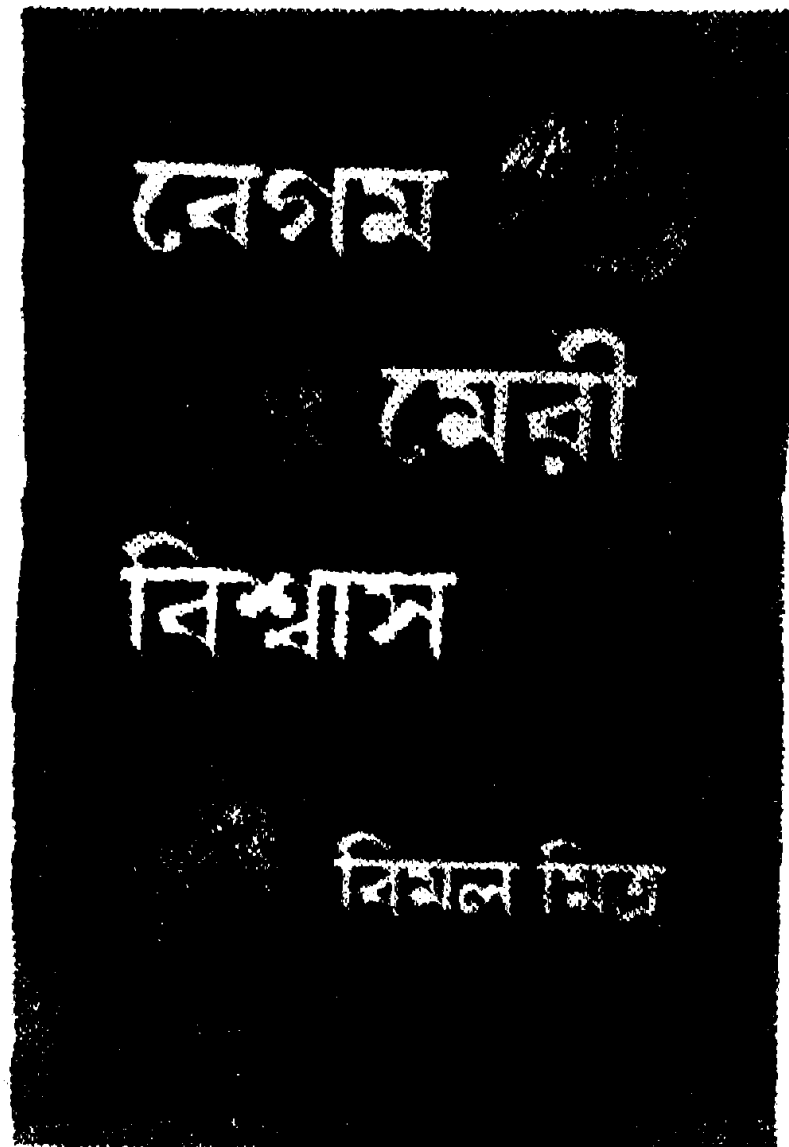 বেগম
মেরী
বিশ্বাস
বিমল মিত্র